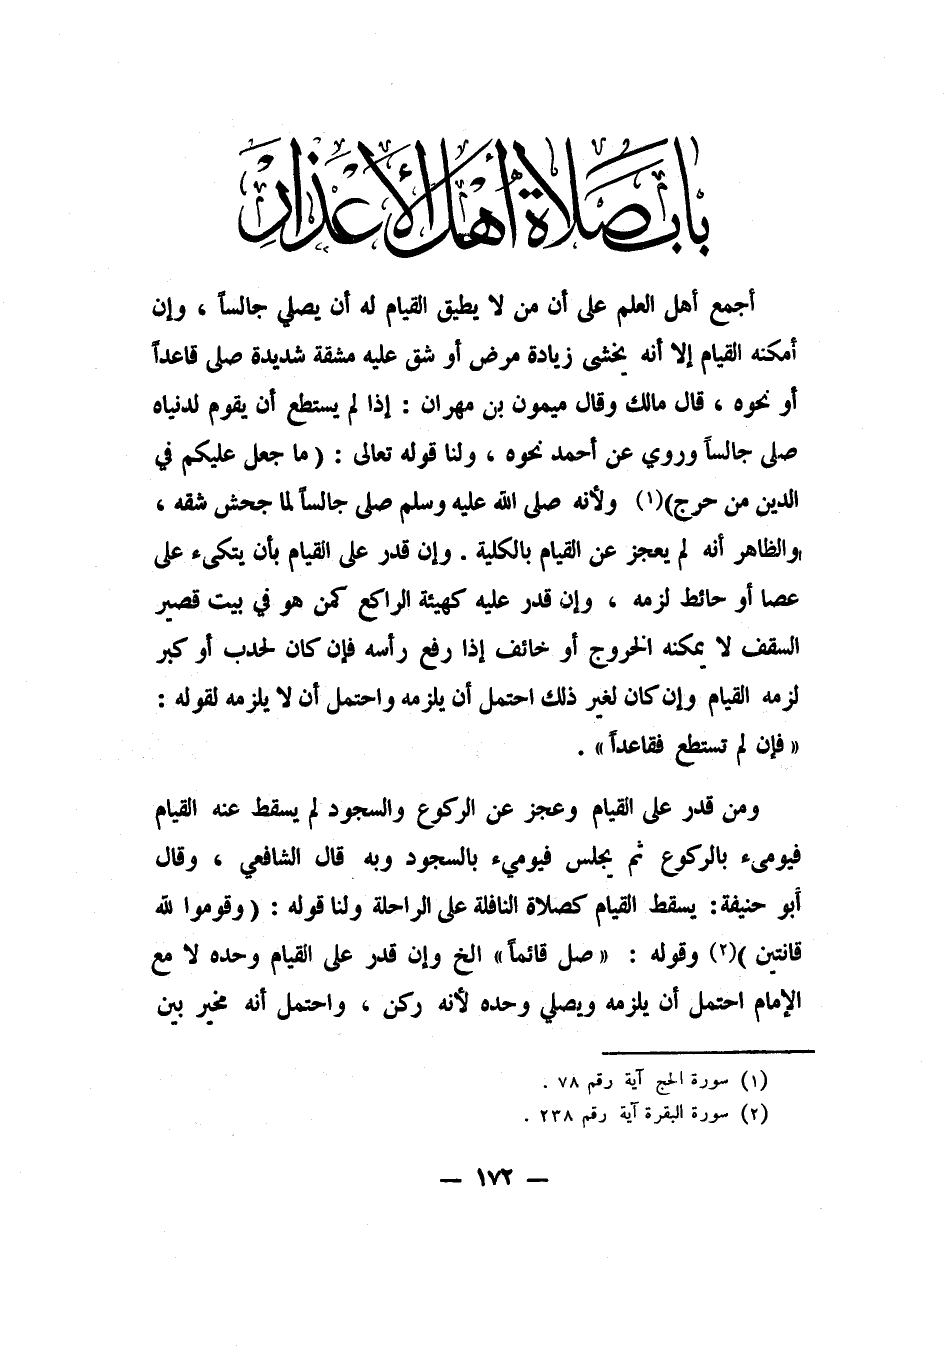 باب صلاة أهل الأعذار
أجمع أهل العلم على أن من لا يطيق القيام له أن يصلي جالساً ، وإن
أمكنه القيام إلا أنه يخشى زيادة مرض أو شق عليه مشقة شديدة صلى قاعداً
أو نحوه ، قال مالك وقال ميمون بن مهران : إذا لم يستطع أن يقوم لدنياه
صلى جالساً وروي عن أحمد نحوه ، ولنا قوله تعالى : ( ما جعل عليكم في
الدين من حرج)(١) ولأنه صلى الله عليه وسلم صلى جالساً لما جحش شقه ،
والظاهر أنه لم يعجز عن القيام بالكلية . وإن قدر على القيام بأن يتكىء على
عصا أو حائط لزمه ، وإن قدر عليه كهيئة الراكع كمن هو في بيت قصير
السقف لا يمكنه الخروج أو خائف إذا رفع رأسه فإن كان لحدب أو كبر
لزمه القيام وإن كان لغير ذلك احتمل أن يلزمه واحتمل أن لا يلزمه لقوله :
« فإن لم تستطع فقاعداً » .
ومن قدر على القيام وعجز عن الركوع والسجود لم يسقط عنه القيام
فيومىء بالركوع ثم يجلس فيوميء بالسجود وبه قال الشافعي ، وقال
أبو حنيفة: يسقط القيام كصلاة النافلة على الراحلة ولنا قوله : ( وقوموا لله
قانتين )(٢) وقوله : « صل قائماً » الخ وإن قدر على القيام وحده لا مع
الإمام احتمل أن يلزمه ويصلي وحده لأنه ركن ، واحتمل أنه مخير بين
(١) سورة الحج آية رقم ٧٨ .
(٢) سورة البقرة آية رقم ٢٣٨ .
— ١٧٢ —